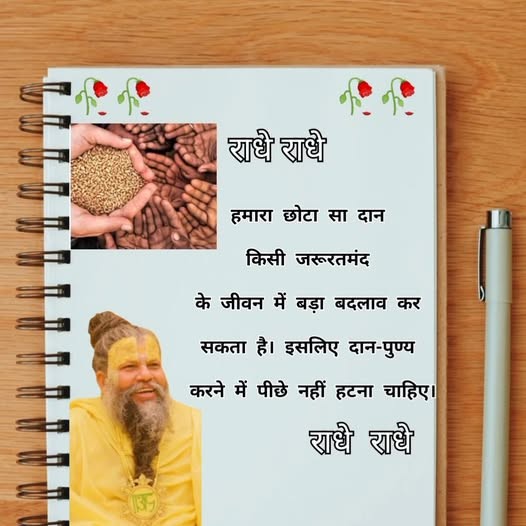 राधे राधे
हमारा छोटा सा दान
किसी जरूरतमंद
के जीवन में बड़ा बदलाव कर
सकता है। इसलिए दान-पुण्य
करने में पीछे नहीं हटना चाहिए।
राधे राधे